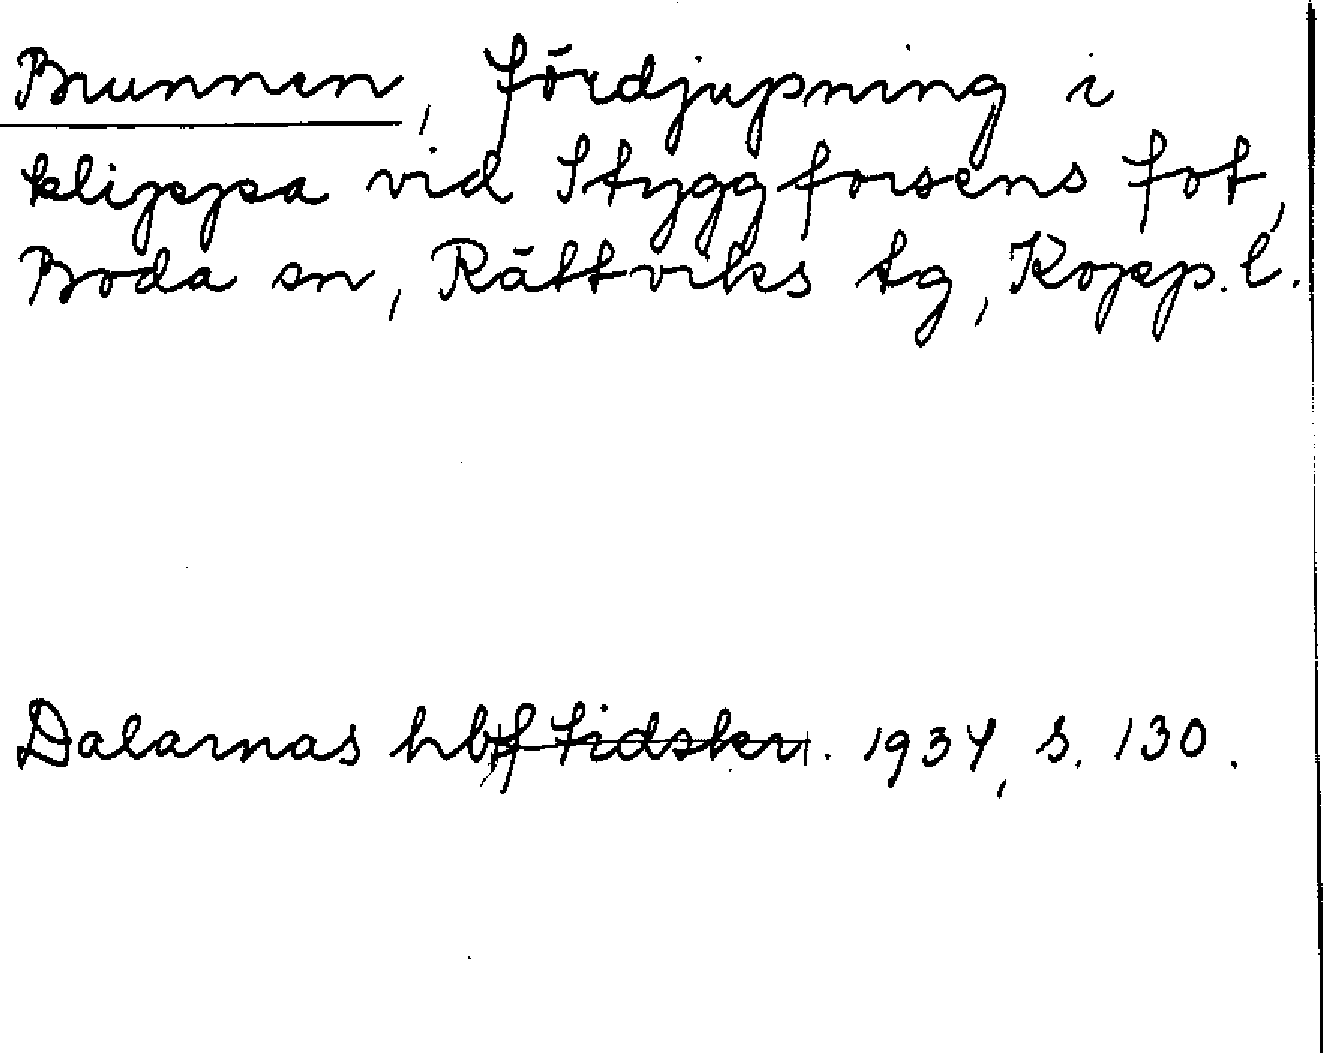 Brunnen, fördjupning i
klippa vid Styggforsens fot,
Boda sn, Rättviks tg, Kopp. l.
Dalarnas hbf tidskr. 1934, s. 130.